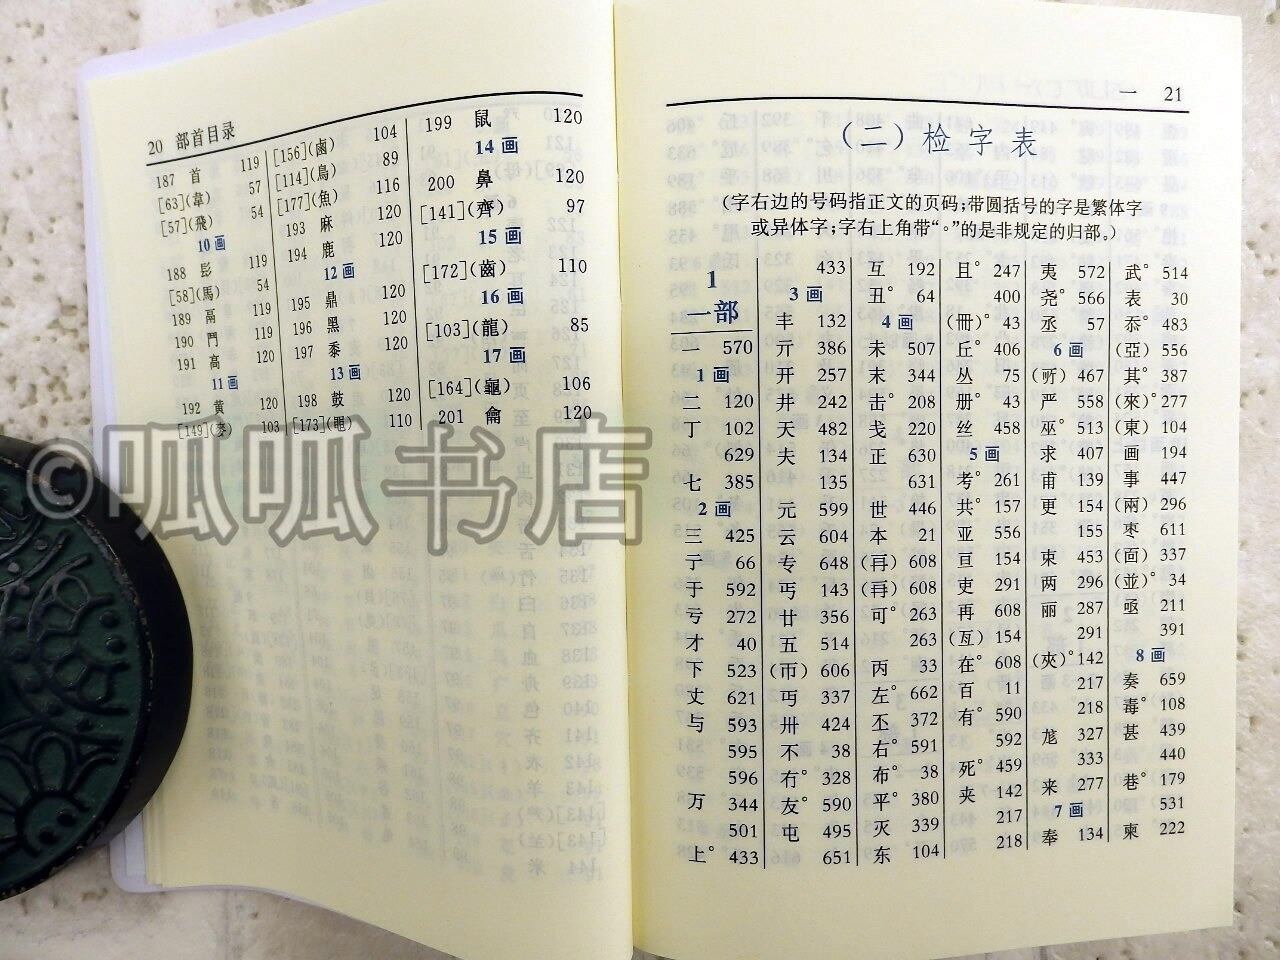 20 部首目录
187 首 119
[63](韋) 57
[57](飛) 54
10画
188 髟 119
[58](馬) 54
189 鬲 119
190 鬥 119
191 高 120
11画
192 黄 120
[149](麥) 103
[156](鹵) 104
[114](鳥) 89
[177](魚) 116
193 麻 120
194 鹿 120
12画
195 鼎 120
196 黑 120
197 黍 120
13画
198 鼓 120
[173](黽) 110
199 鼠 120
14画
200 鼻 120
[141](齊) 97
15画
[172](齒) 110
16画
[103](龍) 85
17画
[164](龜) 106
201 龠 120
一 21
（二）检字表
（字右边的号码指正文的页码；带圆括号的字是繁体字
或异体字；字右上角带“°”的是非规定的归部。）
1
一部
一 570
1画
二 120
丁 102
629
七 385
2画
三 425
亍 66
于 592
亏 272
才 40
下 523
丈 621
与 593
595
596
万 344
501
上° 433
433
3画
丰 132
亓 386
开 257
井 242
天 482
夫 134
135
元 599
云 604
专 648
丐 143
廿 356
五 514
(帀) 606
丏 337
卅 424
不 38
冇° 328
友° 590
屯 495
651
互 192
丑° 64
4画
未 507
末 344
击° 208
戋 220
正 630
631
世 446
本 21
(再) 608
(冄) 608
可° 263
263
丙 33
左° 662
丕 372
右° 591
布° 38
平° 380
灭 339
东 104
且° 247
400
(冊)° 43
丘° 406
丛 75
册° 43
丝 458
5画
考° 261
共° 157
亚 556
亘 154
吏 291
再 608
(亙) 154
在° 608
百 11
有° 590
592
死° 459
夹 142
217
218
夷 572
尧° 566
丞 57
6画
(所) 467
严 558
巫° 513
求 407
甫 139
更 154
155
束 453
两 296
丽 287
291
(夾)° 142
217
218
尨 327
333
来 277
7画
奉 134
武° 514
表 30
忝° 483
(亞) 556
其° 387
(來)° 277
(東) 104
画 194
事 447
(兩) 296
枣 611
(面) 337
(並)° 34
亟 211
391
8画
奏 659
毒° 108
甚 439
440
巷° 179
531
柬 222
©呱呱书店